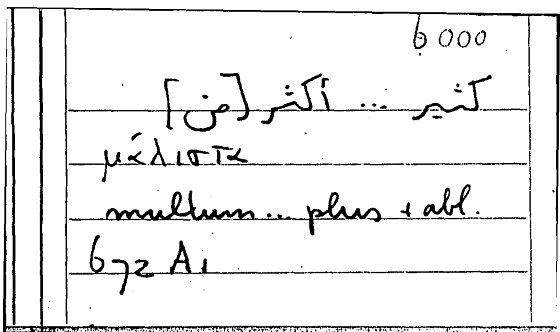 6000
كثير ... أكثر [من]
μάλιστα
multum... plus + abl.
672 A1